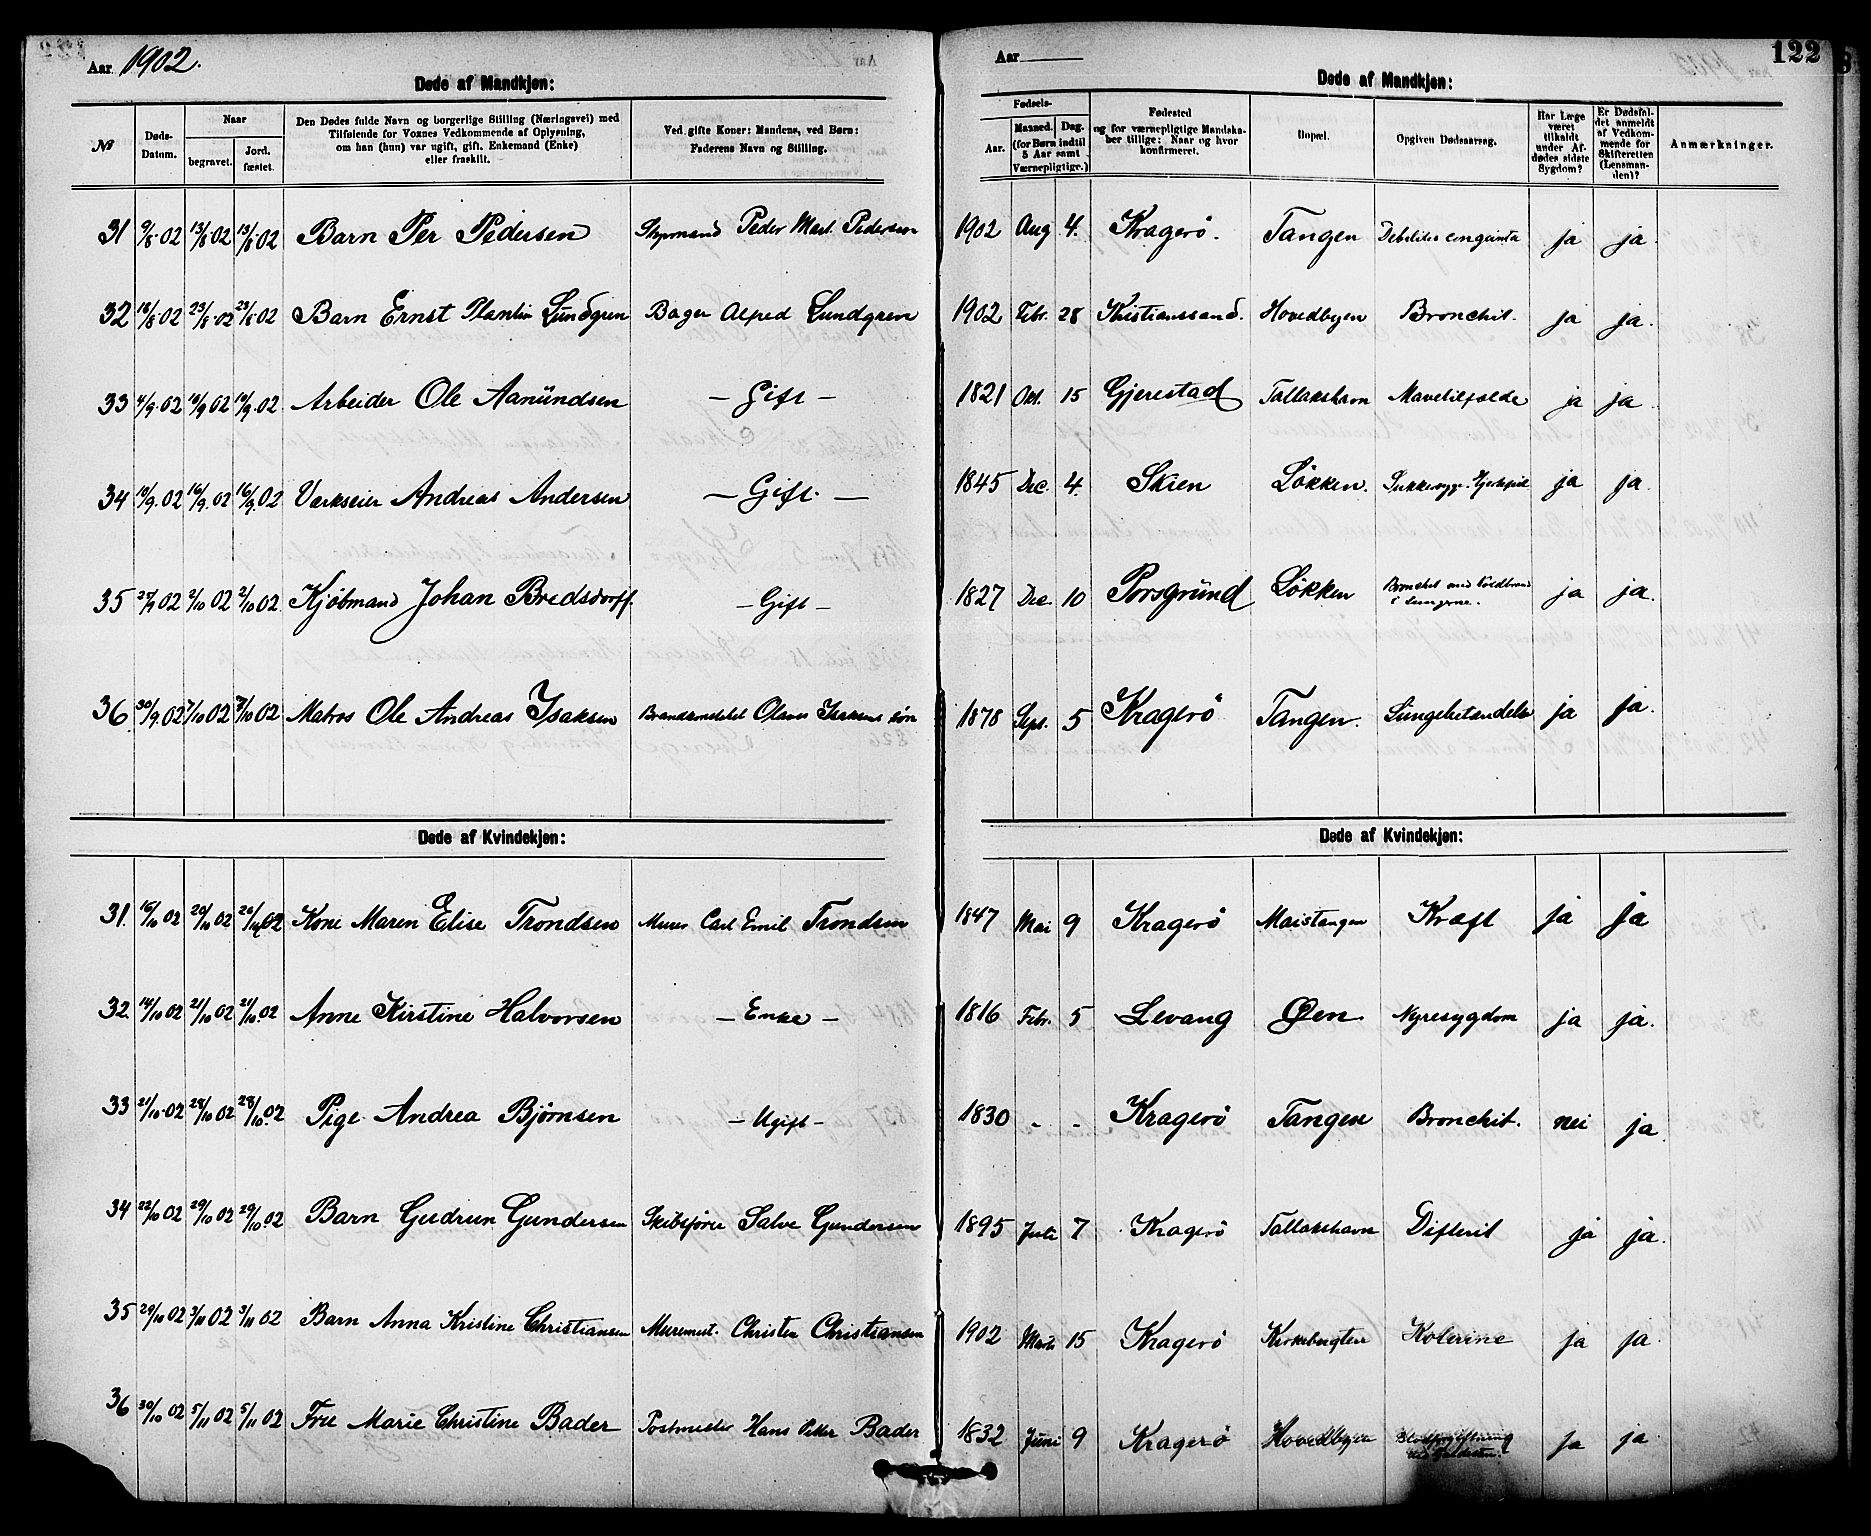 Aar 1902.
Døde af Mandkjøn:
№
Døds-Datum.
Naar
begravet.
Jord. fæstet.
Den Dødes fulde Navn og borgerlige Stilling (Næringsvei) med
Tilføiende for Voxnes Vedkommende af Oplysning,
om han (hun) var ugift, gift, Enkemand (Enke)
eller fraskilt.
Ved gifte Koner: Mandens, ved Børn:
Faderens Navn og Stilling.
Aar
122
Døde af Mandkjøn:
Fødsels-
Aar.
Maaned. Dag.
(for Børn indtil
5 Aar samt
Værnepligtige.)
Fødested
og for værnepligtige Mandska-
ber tillige: Naar og hvor
konfirmeret.
Bopæl.
Opgiven Dødsaarsag.
Har Læge
været
tilkaldt
under Af-
dødes sidste
Sygdom?
Er Dødsfal-
det anmeldt
af Vedkom-
mende for
Skifteretten
(Lensman-
den)?
Anmærkninger.
31 9/8.02 13/8.02 13/8.02 Barn Per Pedersen Styrmand Peder Mart. Pedersen 1902 Aug 4. Kragerö. Tangen Debilitas ja ja.
32 18/8.02 23/8.02 23/8.02 Barn Ernst Plantin Lundgren Bager Alfred Lundgren 1902 Febr. 28 Kristianssand. Hovedbyen Bronchit. ja ja.
33 4/9.02 10/9.02 10/9.02 Arbeider Ole Aanundsen – Gift – 1821 Oct. 15 Gjerestad Tallakshavn Mavetilfælde ja ja
34 10/9.02 16/9.02 16/9.02 Værkseier Andreas Andersen – Gift. – 1845 Dec. 4. Skien Lökken. ja ja.
35 02 2/10 02 2/10 02 Kjöbmand Johan Bredsdorff. – Gift – 1827 Dec. 10 Porsgrund Lökken Bronchit med Koldbrand
i Lungerne. ja ja.
36. 30/9.02 7/10 02 7/10 02 Matros Ole Andreas Isaksen Olaves Isaksens sön 1878 Sept. 5 Kragerö Tangen. Lungebetændelse ja ja.
Døde af Kvindekjøn:
Døde af Kvindekjøn:
31. 16/10 02 20/10 02 20/10 02 Kone Maren Elise Trondsen Murer Carl Emil Trondsen 1847 Mai 9 Kragerö Maistangen Kræft ja ja
32 14/10 02 21/10 02 21/10.02 Anne Kirstine Halvorsen – Enke – 1816 Febr. 5 Levang Øen Nyresygdom ja ja.
33 21/10.02 28/10 02 28/10.02 Pige Andrea Bjørnsen – Ugift – 1830 - - Kragerö Tangen Bronchit. nei ja
34 22/10 02 29/10 02 29/10.02 Barn Gudrun Gundersen Skibsförer Salve Gundersen 1895 Juli 7 Kragerö Tallakshavn Difterit ja ja.
35 29/10 02 3/11 02 3/11 02 Barn Anna Kristine Christiansen Murermest. Christen Christiansen 1902 Marts 15 Kragerö Kirkebugten Kolerine ja ja.
36 30/10 02 5/11 02 5/11 02 Fru Marie Christine Bader Postmester Hans Peter Bader 1832 Juni 9 Kragerö Hovedbyen Blodforgiftning
ved Galdesten. ja ja.